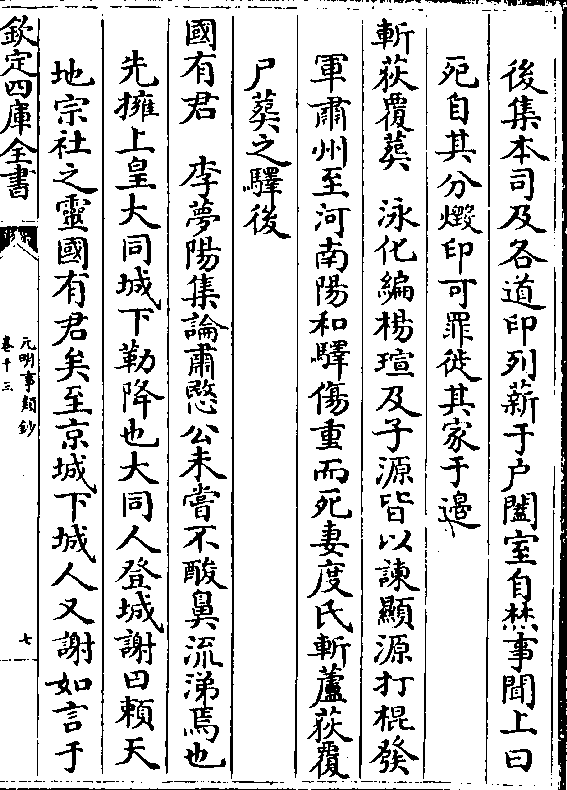 後集本司及各道印列薪于户闔室自焚事聞上曰
死自其分燬印可罪徙其家于邊
斬荻覆葬　泳化編楊瑄及子源皆以諫顯源打棍發
軍肅州至河南陽和驛傷重而死妻度氏斬蘆荻覆
尸葬之驛後
國有君　李夢陽集論肅愍公未嘗不酸鼻流涕焉也
先擁上皇大同城下勒降也大同人登城謝曰賴天
地宗社之靈國有君矣至京城下城人又謝如言于
欽定四庫全書
元明事類鈔
卷十三
七